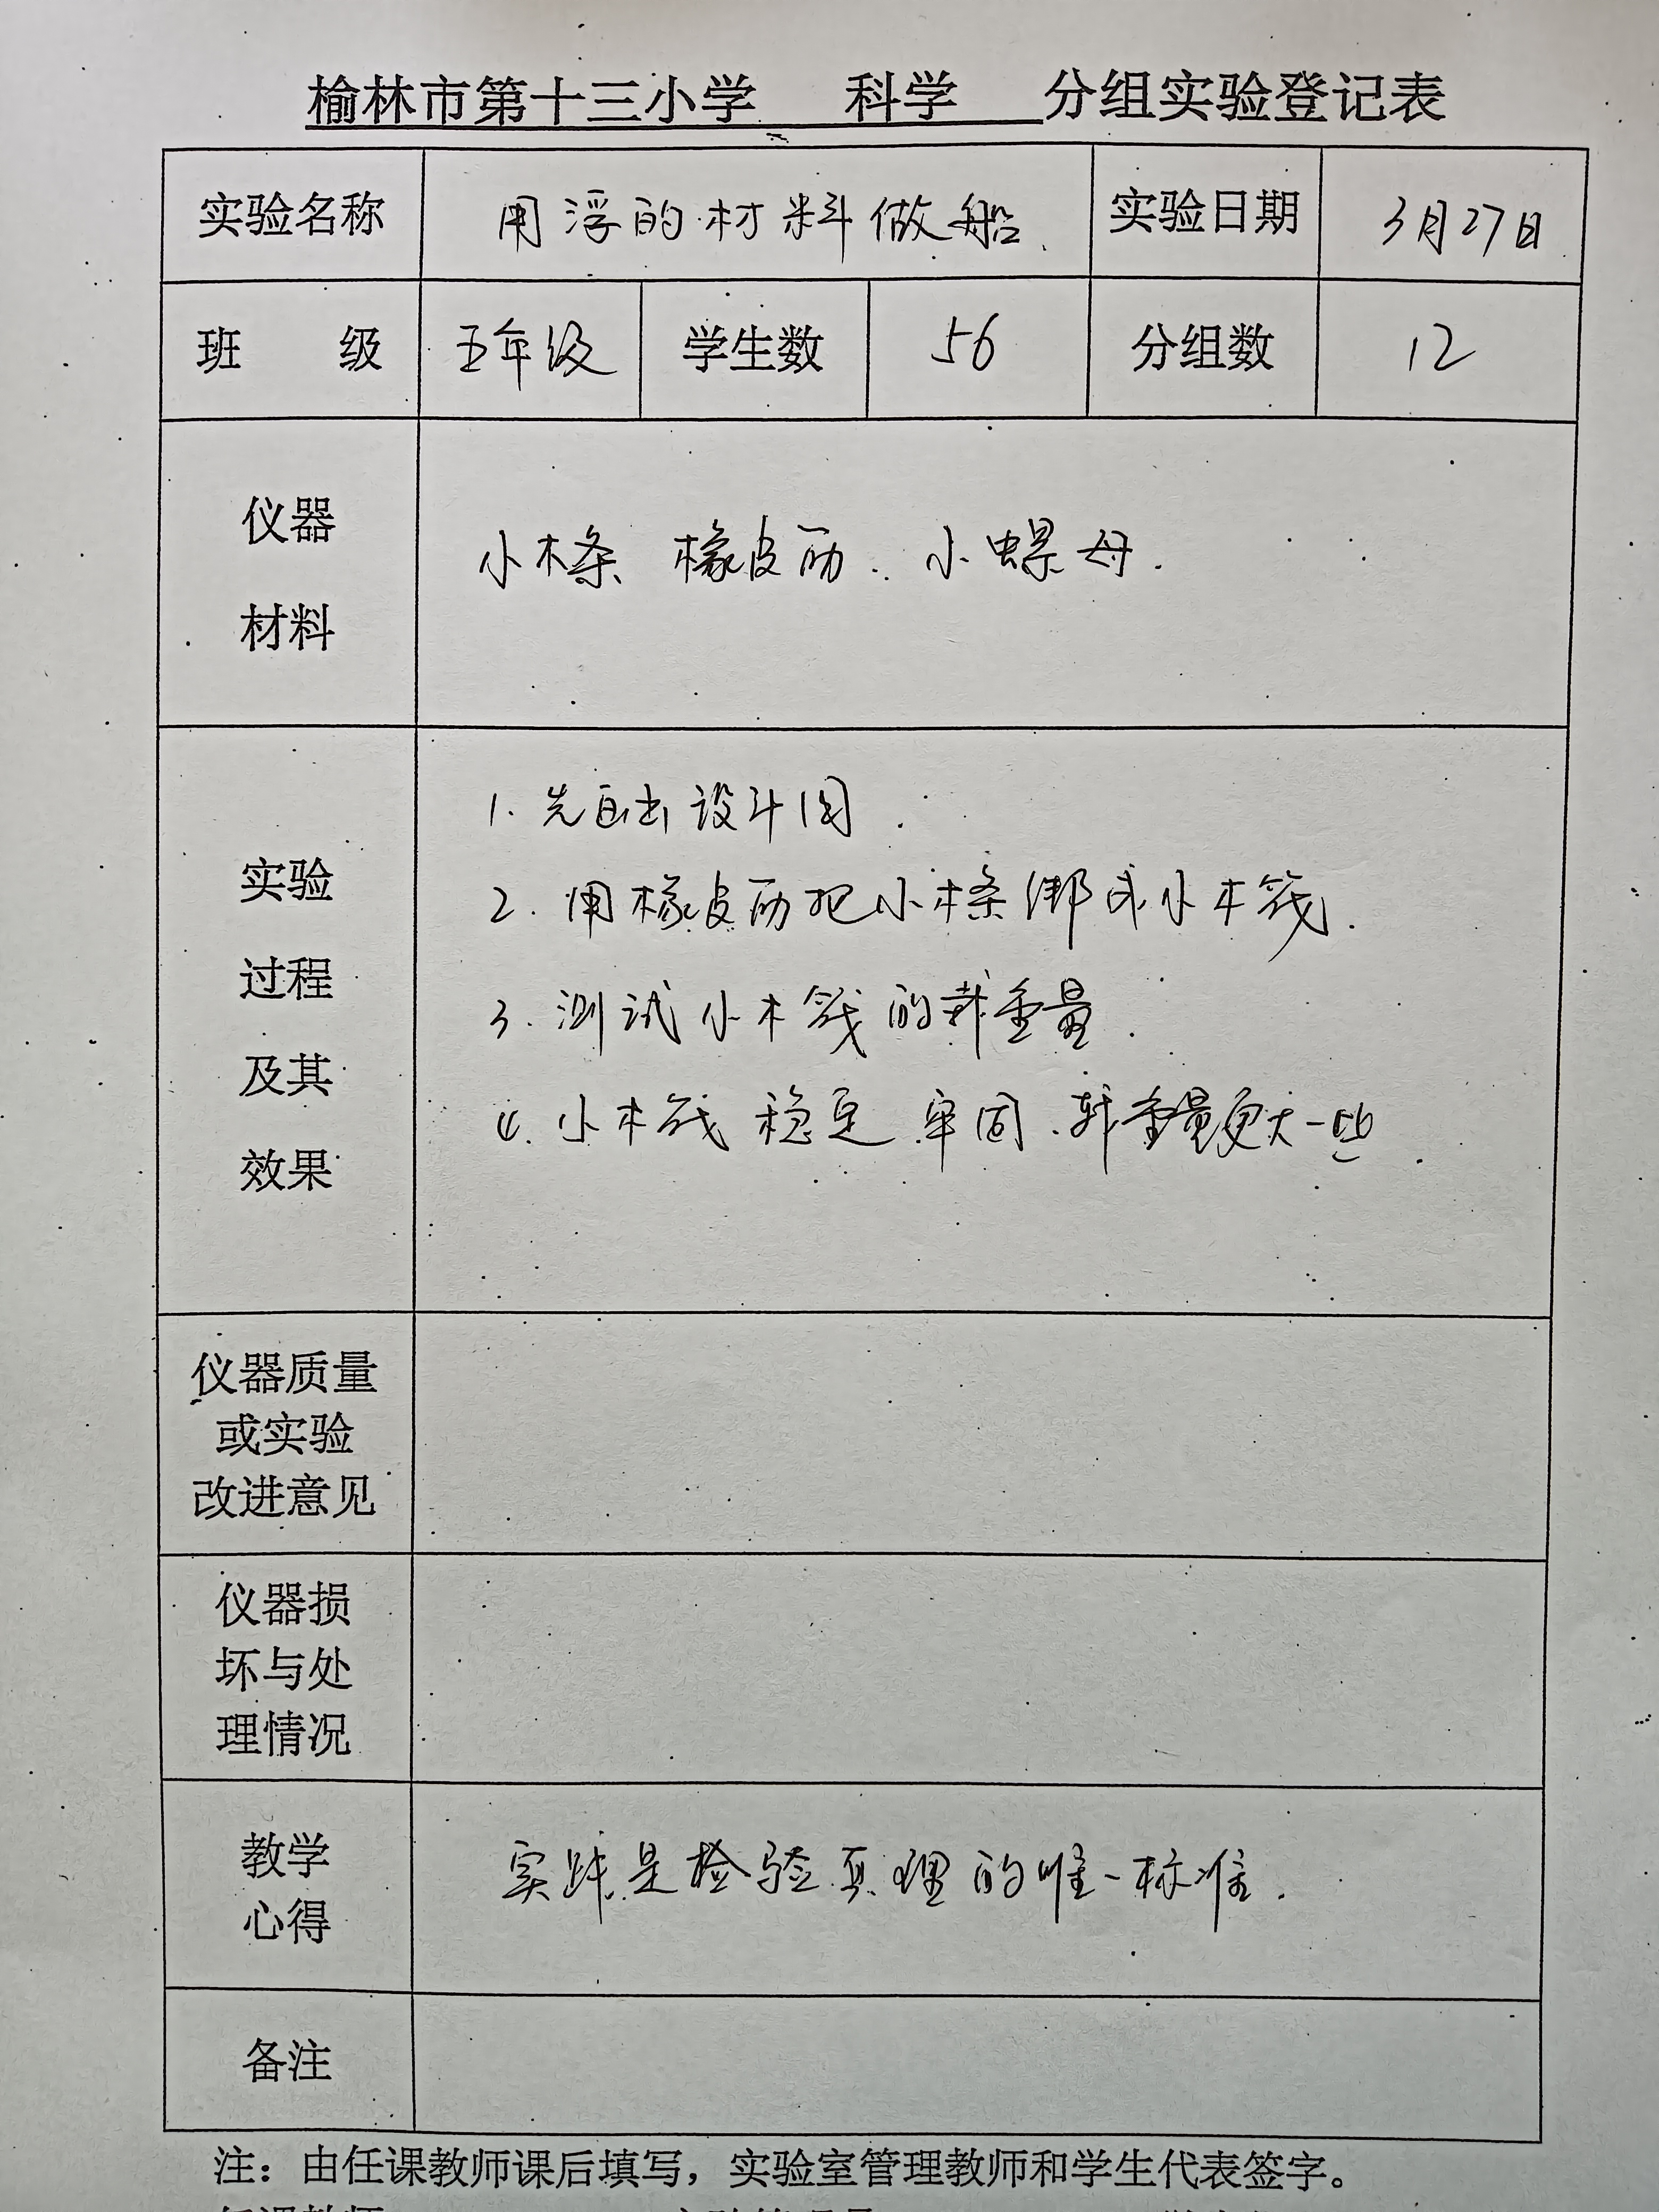 榆林市第十三小学 科学 分组实验登记表
实验名称 用浮的材料做船. 实验日期 3月27日
班 级 五年级 学生数 56 分组数 12
仪器
材料
小木条 橡皮筋. 小螺母.
实验
过程
及其
效果
1. 先画出设计图.
2. 用橡皮筋把小木条绑成小木筏.
3. 测试小木筏的载重量.
4. 小木筏 稳定 牢固.载重量更大一些.
仪器质量
或实验
改进意见
仪器损
坏与处
理情况
教学
心得
实践是检验真理的唯一标准.
备注
注：由任课教师课后填写，实验室管理教师和学生代表签字。